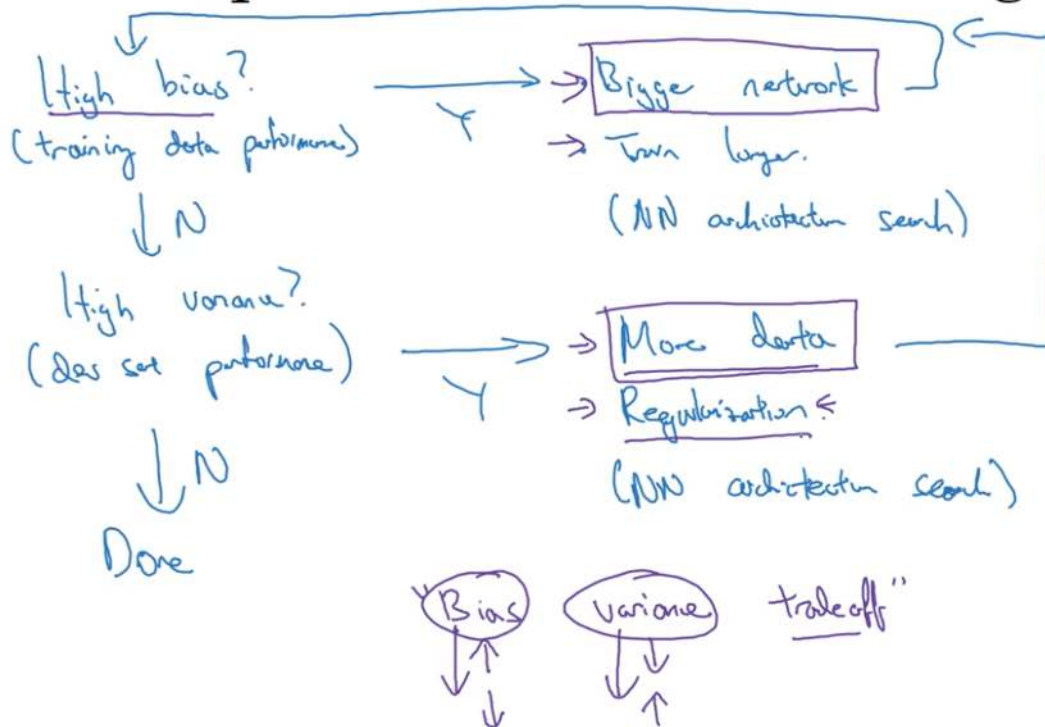 High bias?
(training data performance)
Y
Bigge network
Train longer.
(NN architecture search)
N
High variance?
(dev set performance)
Y
More data
Regularization
(NN architecture search)
N
Done
"Bias variance tradeoff"